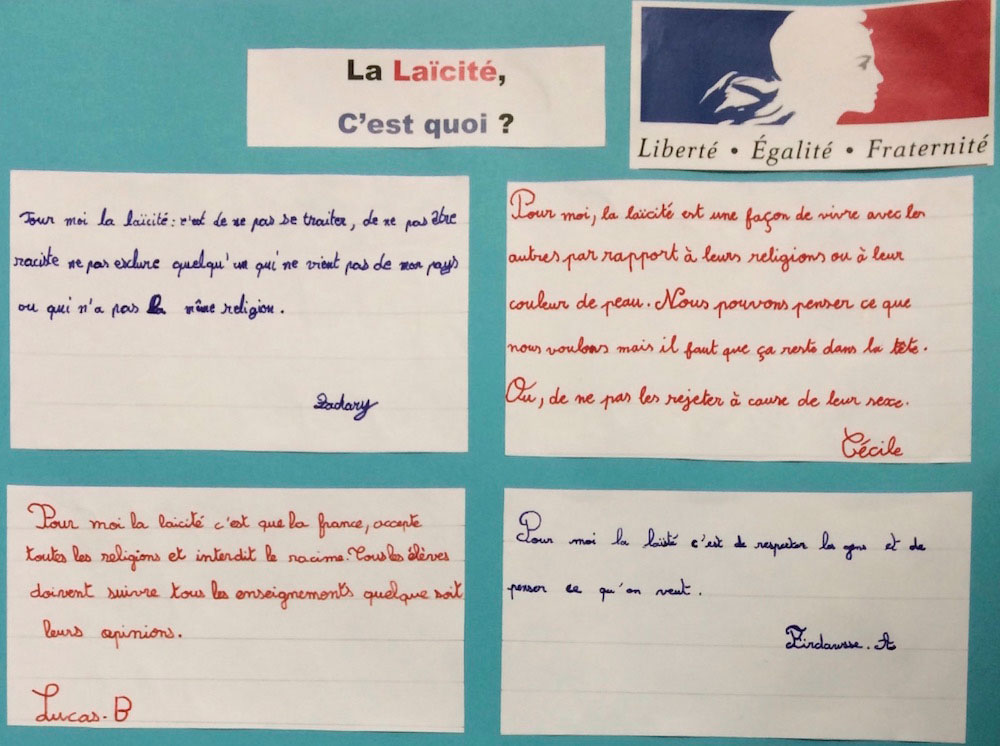 La Laïcité,
C'est quoi ?
Liberté • Égalité • Fraternité
Pour moi la laïcité : c'est de ne pas se traiter, de ne pas être
raciste ne pas esclure quelqu'un qui ne vient pas de mon pays
ou qui n'a pas la même religion.
Zackary
Pour moi, la laïcité est une façon de vivre avec les
autres par rapport à leurs religions ou à leur
couleur de peau. Nous pouvons penser ce que
nous voulons mais il faut que ça reste dans la tête.
Ou, de ne pas les rejeter à cause de leur sexe.
Cécile
Pour moi la laicité c'est que la france, accepte
toutes les religions et interdit le racime. Tous les élèves
doivent suivre tous les enseignements quelque soit
leurs opinions.
Lucas. B
Pour moi la laïsté c'est de respecter les gens et de
penser ce qu'on veut.
Firdawsse. A